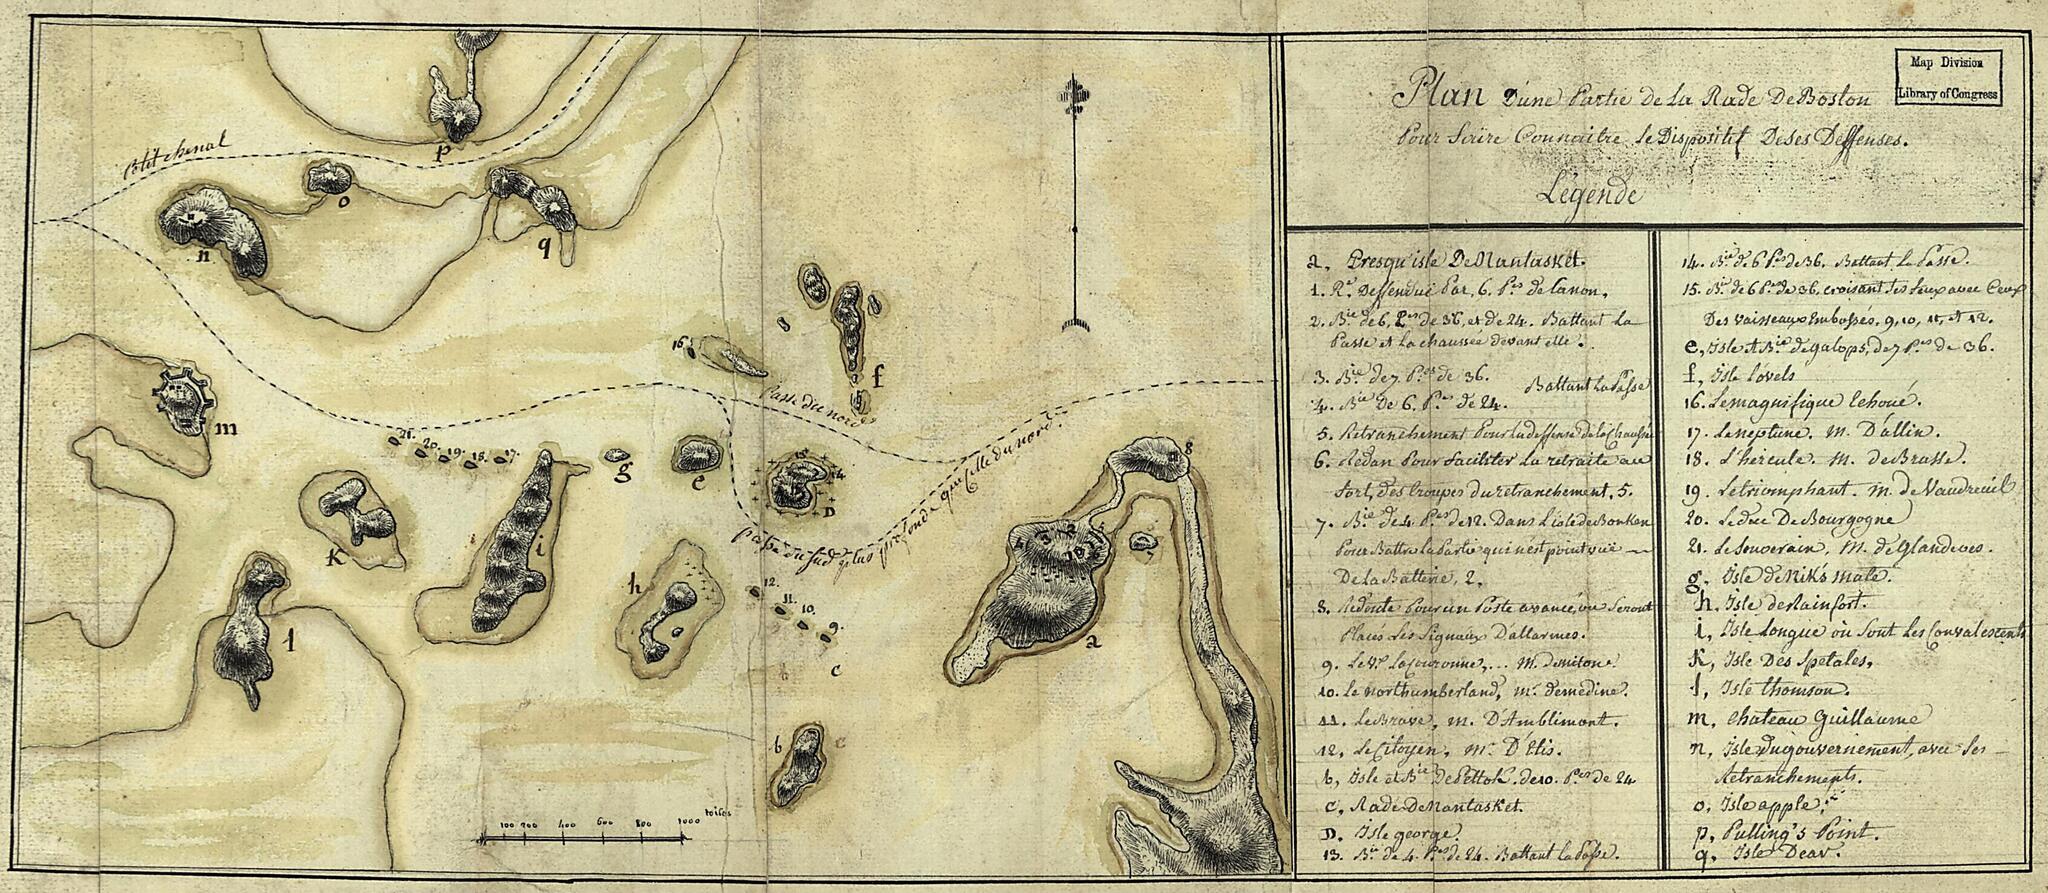 Map Division
Library of Congress
Plan D'une Partie de La Rade De Boston
Pour faire Connaitre le Dispositif De Ses Deffenses.
Légende
a, Presqu'isle De Nantasket.
1. Rte Deffendue Par, 6. Pes de Canon,
2. Bie de 6, Pes de 36, et de 24. Battant la
Passe et La chaussée devant elle.
3. Bie de 7. Pes de 36.
Battant La Passe
4. Bie De 6. Pes de 24.
5. Retranchement Pour la deffense de la Chaussée
6. Redan Pour faciliter La retraite au
fort, des troupes du retranchement, 5.
7. Bie de 4 Pes de 12. Dans L'isle de Bonkan
Pour Battre la Partie qui n'est point vüe
De La Batterie, 2.
8. Redoute Pour un Poste avancé, où Seront
Placés les Signaux D'allarmes.
9. Le Vau La Couronne, M. de mitone.
10. Le Northumberland, Mr. de medine.
11. Le Brave, M. D'Amblimont.
12. Le Citoyen, Mr. D'Etis.
b, Isle et Bie de Pettok, de 10. Pes de 24
c, Rade De Nantasket.
D. Isle george.
13. Bie de 4. Pes de 24. Battant la Passe.
14. Bie de 6 Pes de 36. Battant La Passe.
15. Bie de 6 Pes de 36. croisant Ses feux avec Ceux
Des Vaisseaux Embossés, 9, 10, 11, et 12.
e, Isle et Bie de galops, de 7 Pes de 36.
f, Isle Lovels
16. Le magnifique Echoué.
17. Le neptune. M. D'allin.
18. L'hercule. M. de Brasse.
19. Le triomphant. M. de Vaudreüil
20. Le duc De Bourgogne
21. Le Souverain, M. de Glandeves.
g, Isle de Nik's mate.
h, Isle de Rainfort.
i, Isle Longue où Sont Les Convalescents
K, Isle Des Spetales,
l, Isle thomson.
m, Chateau Guillaume
n, Isle du gouvernement, avec Ses
Retranchements.
o, Isle apple,
p, Pulling's Point.
q, Isle Dear.
petit chenal
p
o
n
q
16
f
Passe du nord
passe du Sud plus profonde que Celle du nord.
m
21.
20.
19.
18.
17.
g
e
15
14
D
8
K
i
h
12.
11.
10.
9.
c
2
5
4
3
1
7
a
l
b
c
100 200 400 600 800 1000 toises